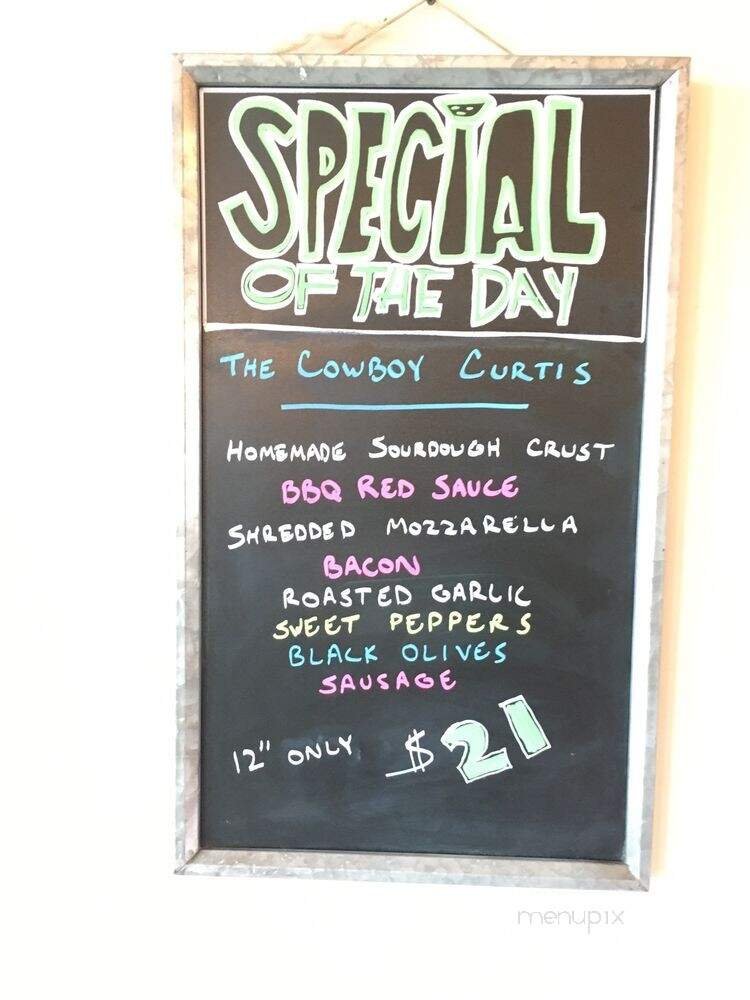 SPECIAL
OF THE DAY
THE COWBOY CURTIS
HOMEMADE SOURDOUGH CRUST
BBQ RED SAUCE
SHREDDED MOZZARELLA
BACON
ROASTED GARLIC
SWEET PEPPERS
BLACK OLIVES
SAUSAGE
12" ONLY $21
menupix